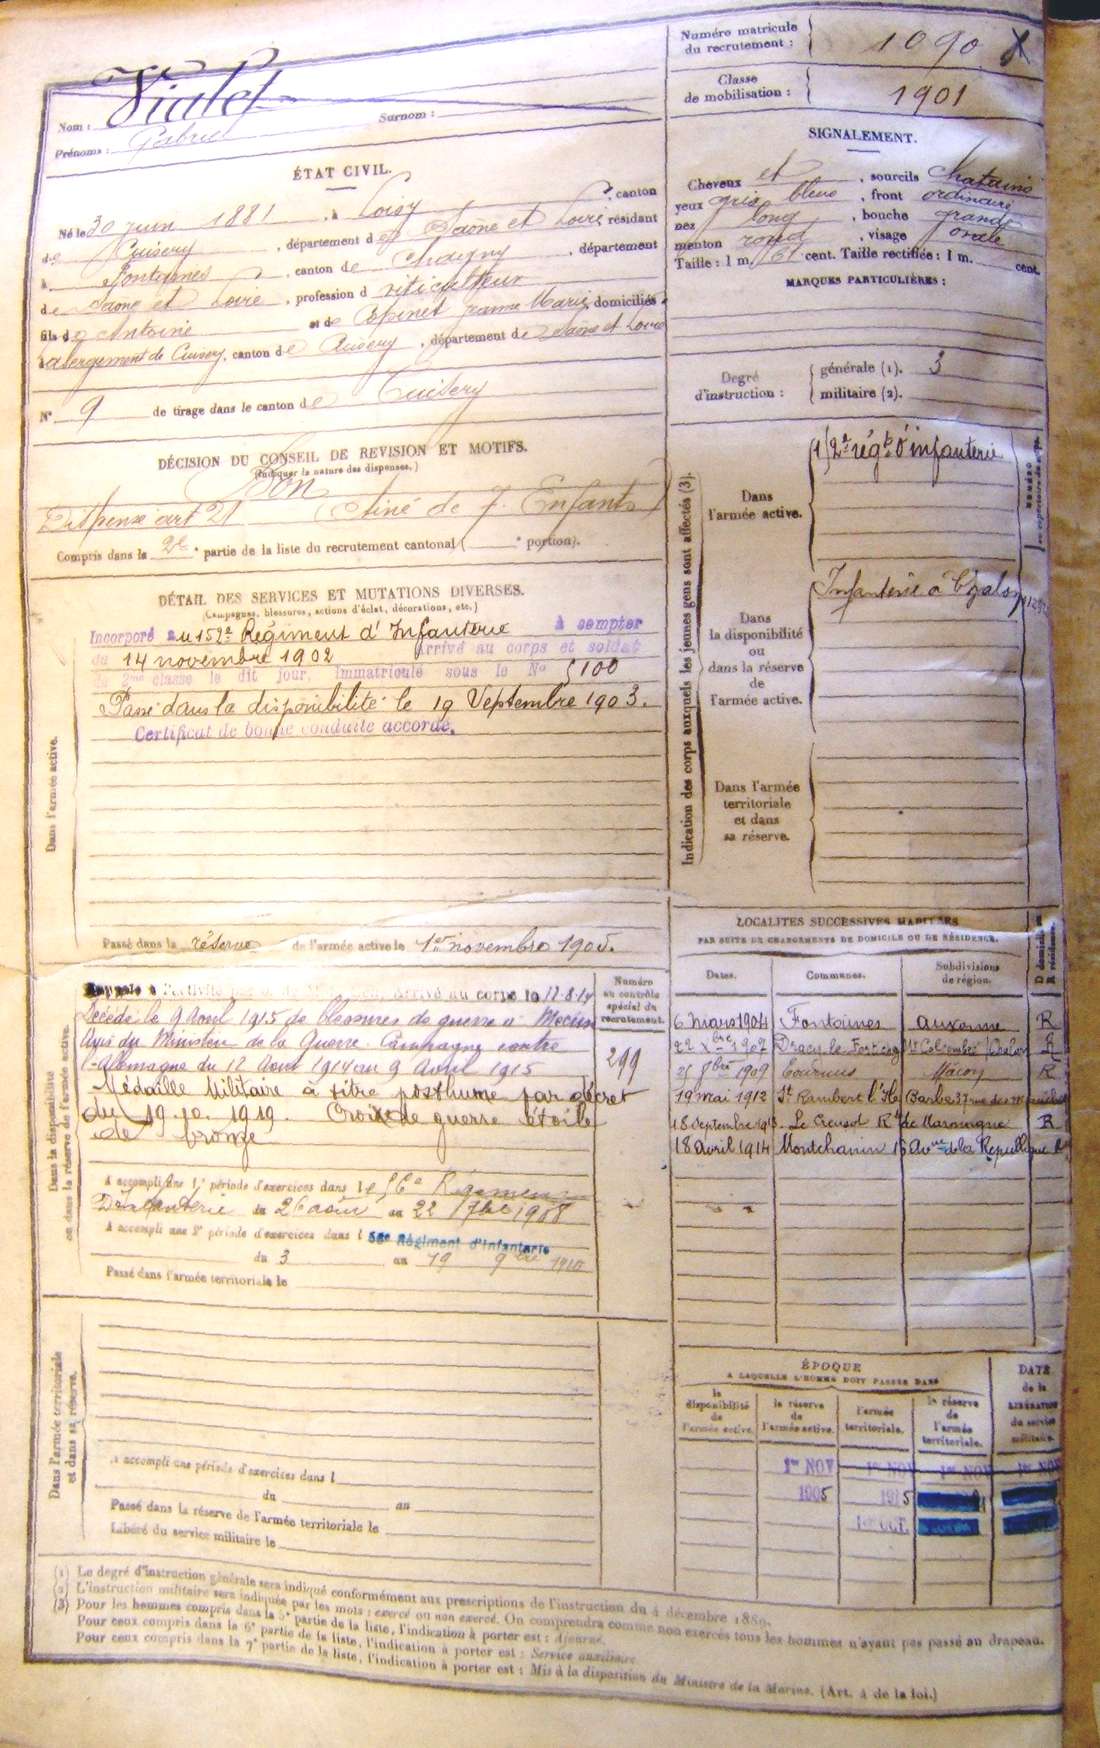 Numéro matricule
du recrutement : 1090
Classe
de mobilisation : 1901
Nom : Vialet
Surnom :
Prénoms : Gabriel
ÉTAT CIVIL.
Né le 30 juin 1881, à Loisy, canton
de Cuisery, département de Saône et Loire, résidant
à Fontaines, canton de Chagny, département
de Saône et Loire, profession d viticulteur
fils de Antoine et de Espinet Jeanne Marie, domiciliés
à l'abergement de Cuisery, canton de Cuisery, département de Saône et Loire
N° 9 de tirage dans le canton de Cuisery
SIGNALEMENT.
Cheveux et, sourcils chatains
yeux gris bleus, front ordinaire
nez long, bouche grande
menton rond, visage ovale
Taille : 1 m. 61 cent. Taille rectifiée : 1 m. cent.
MARQUES PARTICULIÈRES :
Degré
d'instruction :
générale (1). 3
militaire (2).
DÉCISION DU CONSEIL DE REVISION ET MOTIFS.
(Indiquer la nature des dispenses.)
Bon
Dispensé art 21 (Aîné de 7 Enfants)
Compris dans la 2e partie de la liste du recrutement cantonal ( e portion).
DÉTAIL DES SERVICES ET MUTATIONS DIVERSES.
(Campagnes, blessures, actions d'éclat, décorations, etc.)
Dans l'armée active.
Incorporé au 152e Régiment d'Infanterie à compter
du 14 novembre 1902 Arrivé au corps et soldat
de 2me classe le dit jour, Immatriculé sous le No 5100
Passé dans la disponibilité le 19 Septembre 1903.
Certificat de bonne conduite accordé.
Passé dans la réserve de l'armée active le 1er novembre 1905.
Indication des corps auxquels les jeunes gens sont affectés (3).
Dans
l'armée active.
(1) 2e régt d'infanterie
Dans
la disponibilité
ou
dans la réserve
de
l'armée active.
Infanterie à Chalon
Dans l'armée
territoriale
et dans
sa réserve.
Dans la disponibilité
ou dans la réserve de l'armée active.
Numéro
au contrôle
spécial du
recrutement.
299
arrivé au corps le 12-8-14
Décédé le 9 Avril 1915 de blessures de guerre à
Avis du Ministère de la Guerre. Campagne contre
l'Allemagne du 12 Août 1914 au 9 Avril 1915
Médaille Militaire à titre posthume par décret
du 19.10.1919. Croix de guerre étoile
de bronze
A accompli une 1e période d'exercices dans le 56e Régiment
D'Infanterie du 26 août au 22 7bre 1908
A accompli une 2e période d'exercices dans l 56e Régiment d'Infanterie
du 3 au 19 9bre 1910
Passé dans l'armée territoriale le
LOCALITÉS SUCCESSIVES HABITÉES
PAR SUITE DE CHANGEMENTS DE DOMICILE OU DE RÉSIDENCE.
Dates. Communes. Subdivisions
de région.
D domicile
R résidence.
6 mars 1904 Fontaines Auxonne R
22 Xbre 1907 Dracy le Fort R
25 8bre 1909 Tournus Macon R
19 mai 1912 St Rambert l'Ile Barbe 37 rue des
18 Septembre 1913. Le Creusot Rte de Marmagne R
18 avril 1914 Montchanin 16 Avue de la République R
Dans l'armée territoriale
et dans sa réserve.
A accompli une période d'exercices dans l
du au
Passé dans la réserve de l'armée territoriale le
Libéré du service militaire le
ÉPOQUE
A LAQUELLE L'HOMME DOIT PASSER DANS
DATE
de la
LIBÉRATION
du service
militaire.
la
disponibilité
de
l'armée active.
la réserve
de
l'armée active.
l'armée
territoriale.
la réserve
de
l'armée
territoriale.
1er NOV 1er NOV 1er NOV 1er NOV
1905 1915
(1) Le degré d'instruction générale sera indiqué conformément aux prescriptions de l'instruction du 4 décembre 1889.
(2) L'instruction militaire sera indiquée par les mots : exercé ou non exercé. On comprendra comme non exercés tous les hommes n'ayant pas passé au drapeau.
(3) Pour les hommes compris dans la 5e partie de la liste, l'indication à porter est : Ajourné.
Pour ceux compris dans la 6e partie de la liste, l'indication à porter est : Service auxiliaire
Pour ceux compris dans la 7e partie de la liste, l'indication à porter est : Mis à la disposition du Ministre de la Marine. (Art. 4 de la loi.)